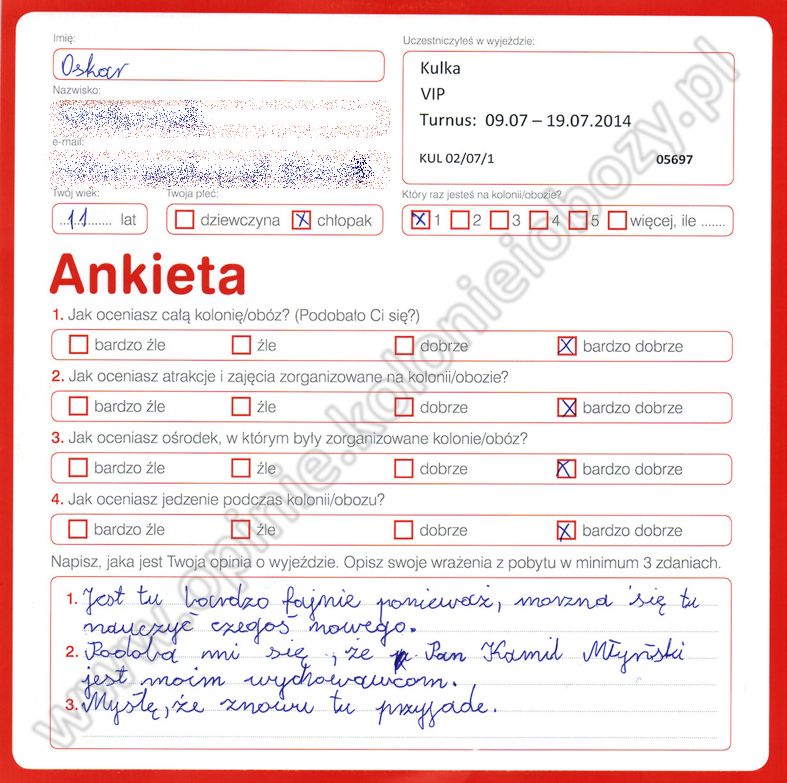 Imię:
Oskar
Uczestniczyłeś w wyjeździe:
Kulka
VIP
Turnus: 09.07 – 19.07.2014
KUL 02/07/1 05697
Nazwisko:
e-mail:
Twój wiek: Twoja płeć: Który raz jesteś na kolonii/obozie?
11 lat dziewczyna x chłopak x 1 2 3 4 5 więcej, ile .......
Ankieta
1. Jak oceniasz całą kolonię/obóz? (Podobało Ci się?)
bardzo źle źle dobrze x bardzo dobrze
2. Jak oceniasz atrakcje i zajęcia zorganizowane na kolonii/obozie?
bardzo źle źle dobrze x bardzo dobrze
3. Jak oceniasz ośrodek, w którym były zorganizowane kolonie/obóz?
bardzo źle źle dobrze x bardzo dobrze
4. Jak oceniasz jedzenie podczas kolonii/obozu?
bardzo źle źle dobrze x bardzo dobrze
Napisz, jaka jest Twoja opinia o wyjeździe. Opisz swoje wrażenia z pobytu w minimum 3 zdaniach.
1. Jest tu bardzo fajnie ponieważ, morzna się tu
nauczyć czegoś nowego.
2. Podoba mi się, że Pan Kamil Młyński
jest moim wychowawcom.
3. Myślę, że znowu tu przyjade.
www.opinie.kolonieiobozy.pl